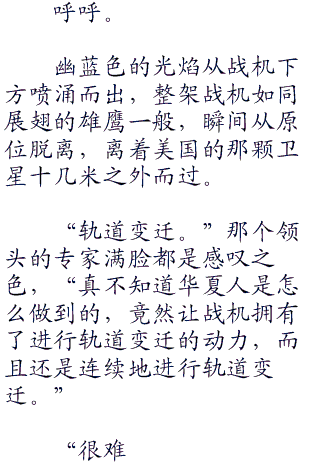 呼呼。
幽蓝色的光焰从战机下
方喷涌而出，整架战机如同
展翅的雄鹰一般，瞬间从原
位脱离，离着美国的那颗卫
星十几米之外而过。
“轨道变迁。”那个领
头的专家满脸都是感叹之
色，“真不知道华夏人是怎
么做到的，竟然让战机拥有
了进行轨道变迁的动力，而
且还是连续地进行轨道变
迁。”
“很难